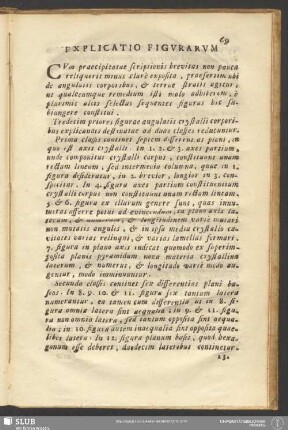 69
EXPLICATIO FIGVRARVM
CVm praecipitatae scriptionis brevitas non pauca
reliquerit minus clarè exposita, praesertim ubi
de angulatis corporibus, & terrae stratis agitur,
ut qualecunque remedium isti malo adhiberem, è
plurimis alias selectas sequentes figuras hic su-
biungere constitui.
Tredecim priores figurae angulatis crystalli corpori-
bus explicandis destinatae ad duas classes reducuntur.
Prima classis continet septem differentias plani, in
quo est axis crystalli. In 1. 2. & 3. axis partium,
unde componitur crystalli corpus, constituunt unam
rectam lineam, sed intermedia columna, quae in 1.
figura desideratur, in 2. brevior, longior in 3. con-
spicitur. In 4. figura axis partium constituentium
crystalli corpus non constituunt unam rectam lineam.
5. & 6. figura ex illarum genere sunt, quas innu-
meras afferre possem ad evincendum, in plano axis la-
terum, & numerum, & longitudinem variè mutari
non mutatis angulis, & in ipsa media crystalli ca-
vitates varias relinqui, & varias lamellas formari.
7. figura in plano axis indicat quomodo ex superim-
posita planis pyramidum nova materia crystallina
laterum, & numerus, & longitudo variè modo au-
gentur, modo imminuuntur.
Secunda classis continet sex differentias plani ba-
seos. In 8. 9. 10. & 11. figura sex tantum latera
numerantur, ea tamen cum differentia ut in 8. fi-
gura omnia latera sint aequalia; in 9. & 11. figu-
ra non omnia latera, sed tantum opposita sint aequa-
lia; in 10. figura autem inaequalia sint opposita quae-
libet latera. In 12. figura planum baseos, quod hexa-
gonum esse deberet, duodecim lateribus continetur.
13.
SLUB